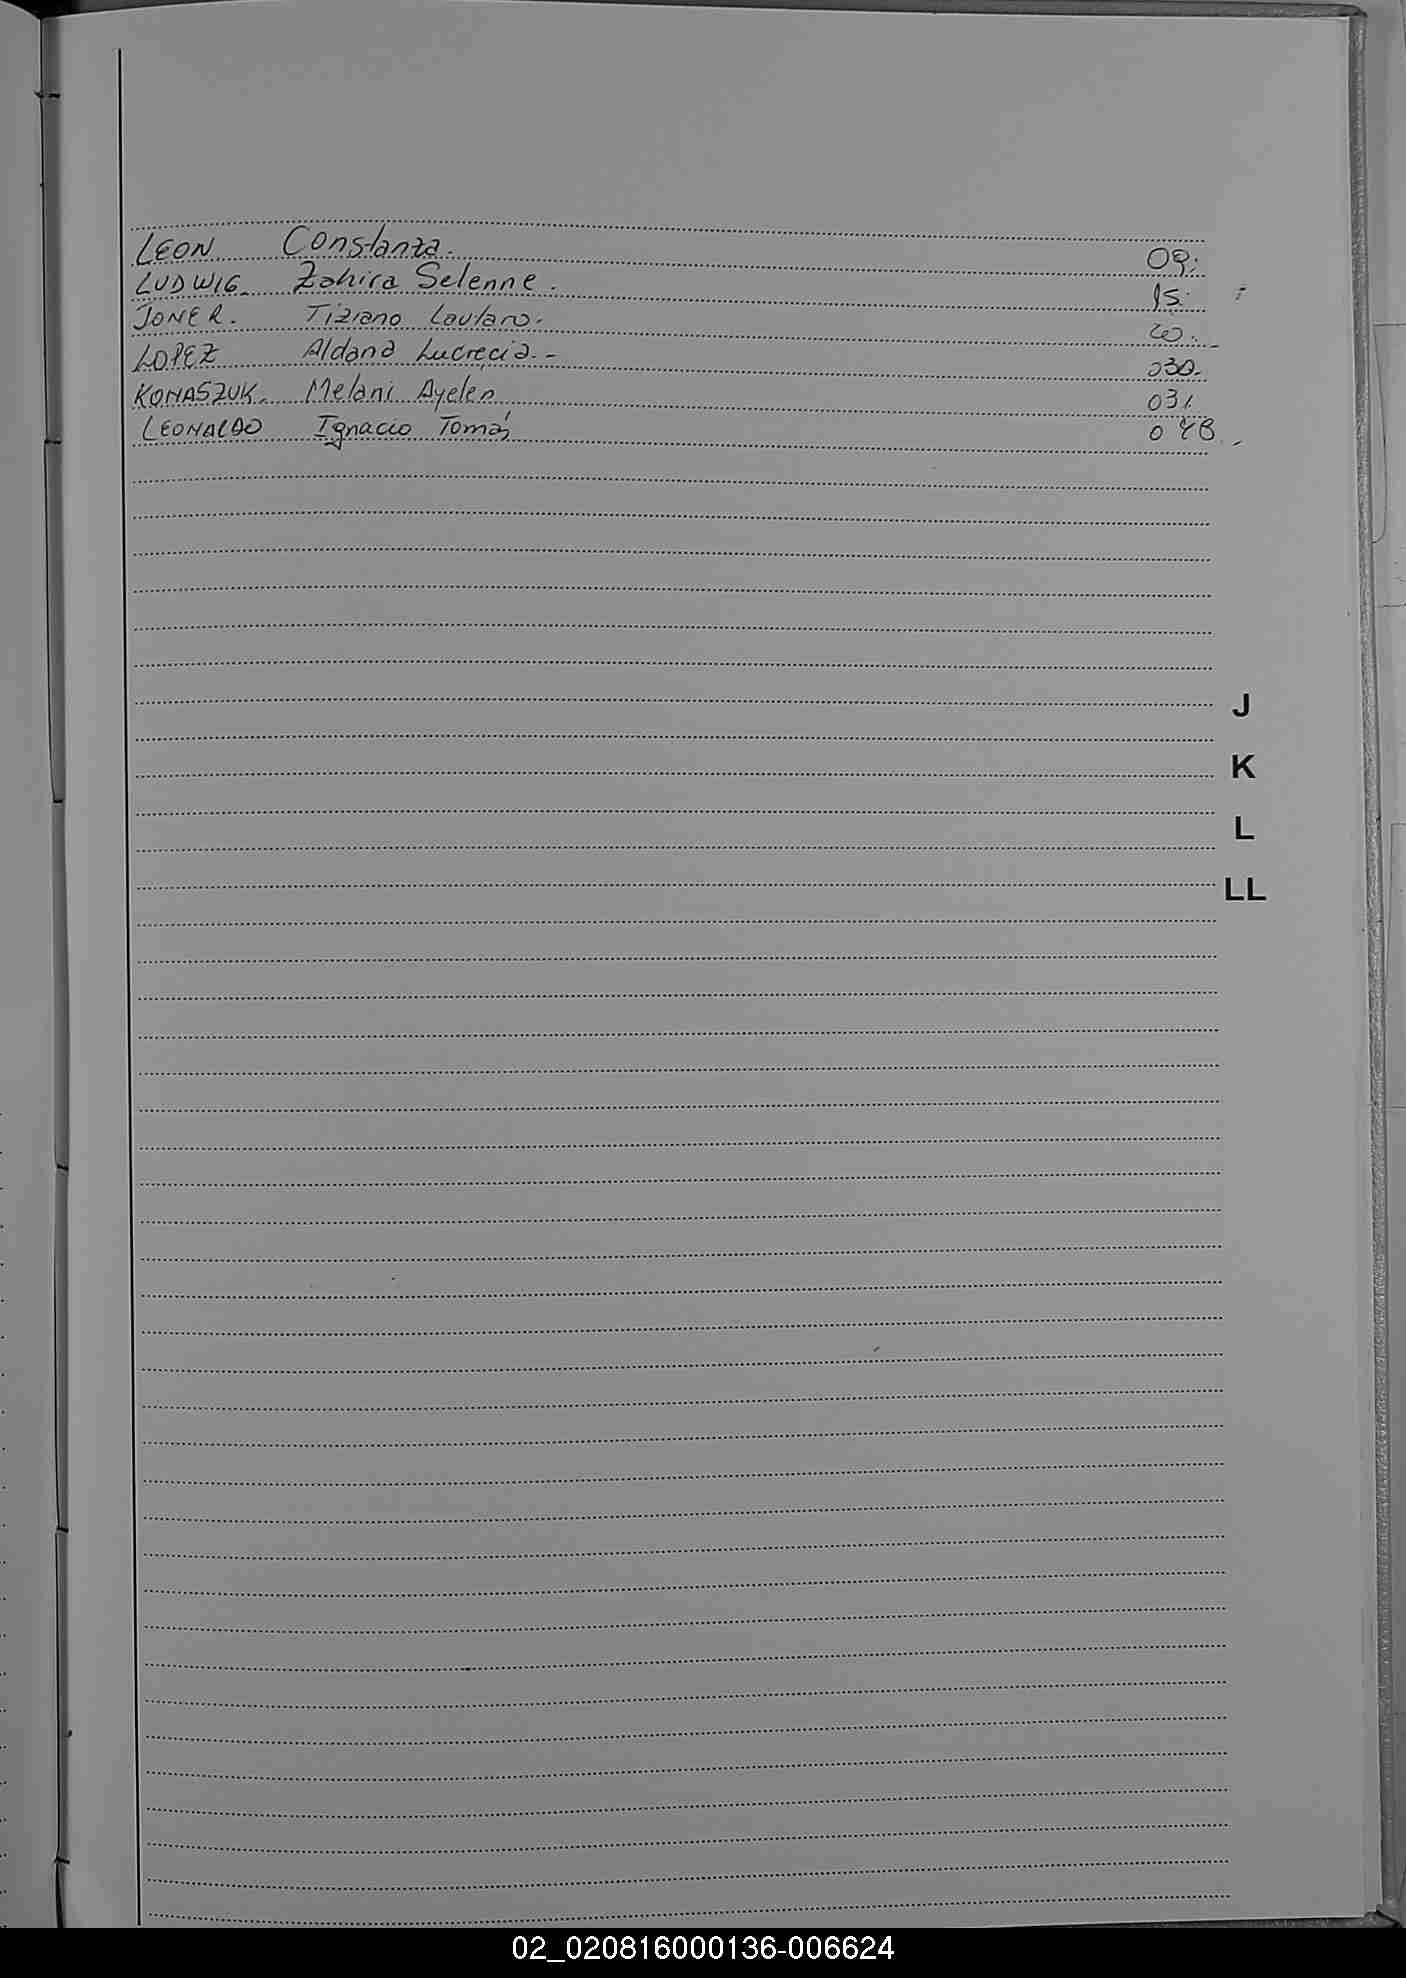 LEON. Constanza. 09.
LUDWIG. Zahira Selenne. 15.
JONER. Tiziano Lautaro. 20.-
LOPEZ Aldana Lucrecia.- 030.
KOMASZUK. Melani Ayelen 031
LEONALDO Ignacio Tomás 048.-
J
K
L
LL
02_020816000136-006624